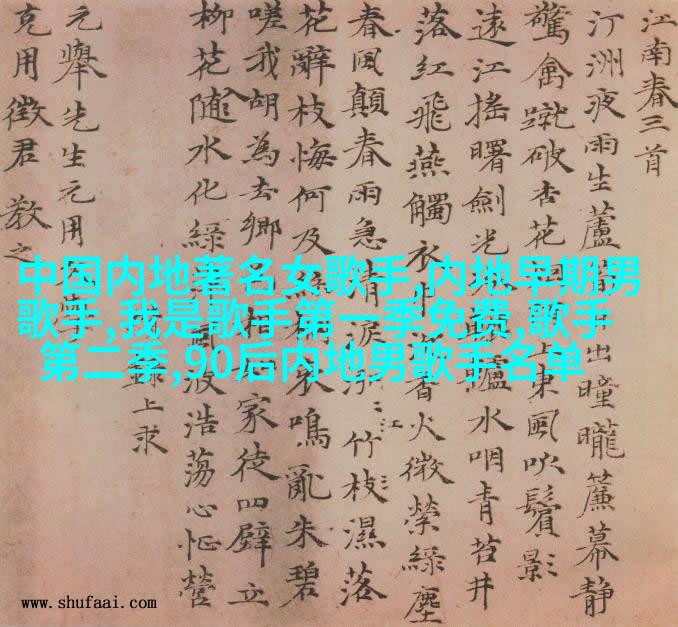 江南春三首
汀洲夜雨生蘆出曈曨簾幕静
驚禽蹴破杏花上東風吹鬢影
遠江搖曙劍光轤水咽青苔井
落紅飛燕觸衣香火微縈綠塵
春風顛春雨急清淚江竹枝濕落
花辭枝悔何及鳴亂朱碧
嗟我胡為去鄉家徒四壁立
柳花隨水化綠風波浩蕩心怔營
上求
元舉先生元用
克用徵君教之
中国内地著名女歌手,内地早期男
歌手,我是歌手第一季免费,歌手
第二季,90后内地男歌手名单
www.shufaai.com